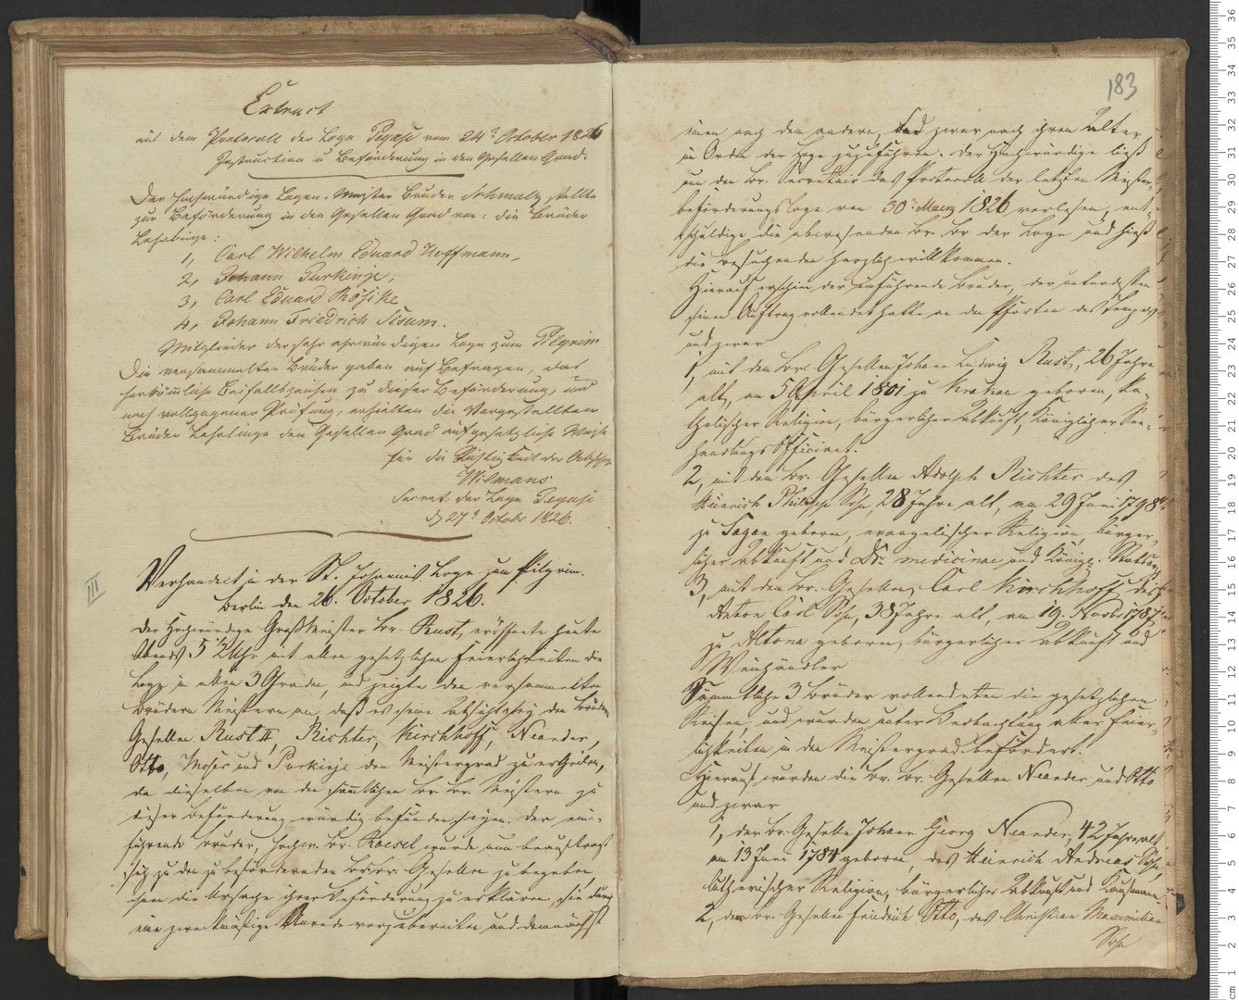 Extract
aus dem Protocoll der Loge Pegase vom 24t October 1826
Instruction u Beförderung in den Gesellen Grad.
Der Hochwürdige Logen-Meister Bruder Schmalz stellte
zur Beförderung in den Gesellen Grad vor: die Brüder
Lehrlinge:
1, Carl Wilhelm Eduard Hoffmann,
2, Johann Purkinje,
3, Carl Eduard
4, Johann Friedrich Sisum.
Mitglieder der sehr ehrwürdigen Loge zum Pilgrim
Die versammelten Brüder gaben auf Befragen, das
herkömmliche Beifallszeichen zu dieser Beförderung, und
nach vollzogener Prüfung, erhielten die Vorgestellten
Brüder Lehrlinge den Gesellen Grad auf gesetzliche Weise
für die Richtigkeit der Abschrift
Wilmans
Secret. der Loge Pegase
d 27t Octobr 1826.
III
Verhandelt in der St. Johannis Loge zum Pilgrim.
Berlin den 26. October 1826.
Der Hochwürdige Großmeister Br. Rust, eröffnete heute
Abends 5 1/2 Uhr mit allen gesetzlichen Feierlichkeiten die
Loge in allen 3 Graden, und zeigte den versammelten
Brüdern Meistern an, daß es seine Absicht sey den Brüdern
Gesellen Rust II, Richter, Kirchhoff, Neander,
Otto, Moser und Purkinje den Meistergrad zu ertheilen,
da dieselben von den sämtlichen Br. Br. Meistern zu
dieser Beförderung würdig befunden seyen. Der ein-
führende Bruder, Br. Roesel wurde nun beauftragt
sich zu den zu befördernden Br. Br. Gesellen zu begeben,
ihnen die Ursache ihrer Beförderung zu erklären, sie durch
eine zweckmäßige Anrede vorzubereiten und demnächst
183
einen nach dem andern, und zwar nach ihrem Alter
in Ordn der Loge zuzuführen. Der Hochwürdige ließ
von dem Br. Secretair das Protocoll der letzten Meister-
beförderungsloge vom 30t Maerz 1826 vorlesen, ent-
schuldigte die abwesenden Br. Br. der Loge und hieß
die besuchenden herzlich willkommen.
Hierauf erschien der einführende Bruder, der unterdessen
seinen Auftrag vollendet hatte an den Pforten des Tempels
und zwar
1, mit dem Br. Gesellen Johann Ludwig Rust, 26 Jahre
alt, am 5 April 1801 zu geboren, ka-
tholischer Religion, bürgerlicher Abkunft, Königlicher See-
handlungs Officiant.
2, mit dem Br. Gesellen Adolph Richter des
Heinrich Philipp Sohn, 28 Jahre alt, am 29 Juni 1798
zu Sagan geboren, evangelischer Religion, bürger-
licher Abkunft und Dr. medicinae und Königl.
3, mit dem Br. Gesellen Carl Kirchhoff, des
Anton Carl Sohn, 38 Jahre alt, am 19. Novbr 1787
zu Altona geboren, bürgerlicher Abkunft und
Weinhändler
Sämmtliche 3 Brüder vollendeten die gesetzlichen
Reisen, und wurden unter Beobachtung aller Feier-
lichkeiten in den Meistergrad befördert.
Hierauf wurden die Br. Br. Gesellen Neander und Otto
und zwar
1, der Br. Geselle Johann Georg Neander, 42 Jahre alt
am 13 Juni 1784 geboren, des Heinrich Andreas Sohn,
lutherischer Religion, bürgerlicher Abkunft und Kaufmann.
2, der Br. Geselle Friedrich Otto, des Christian Maximilian
Sohn